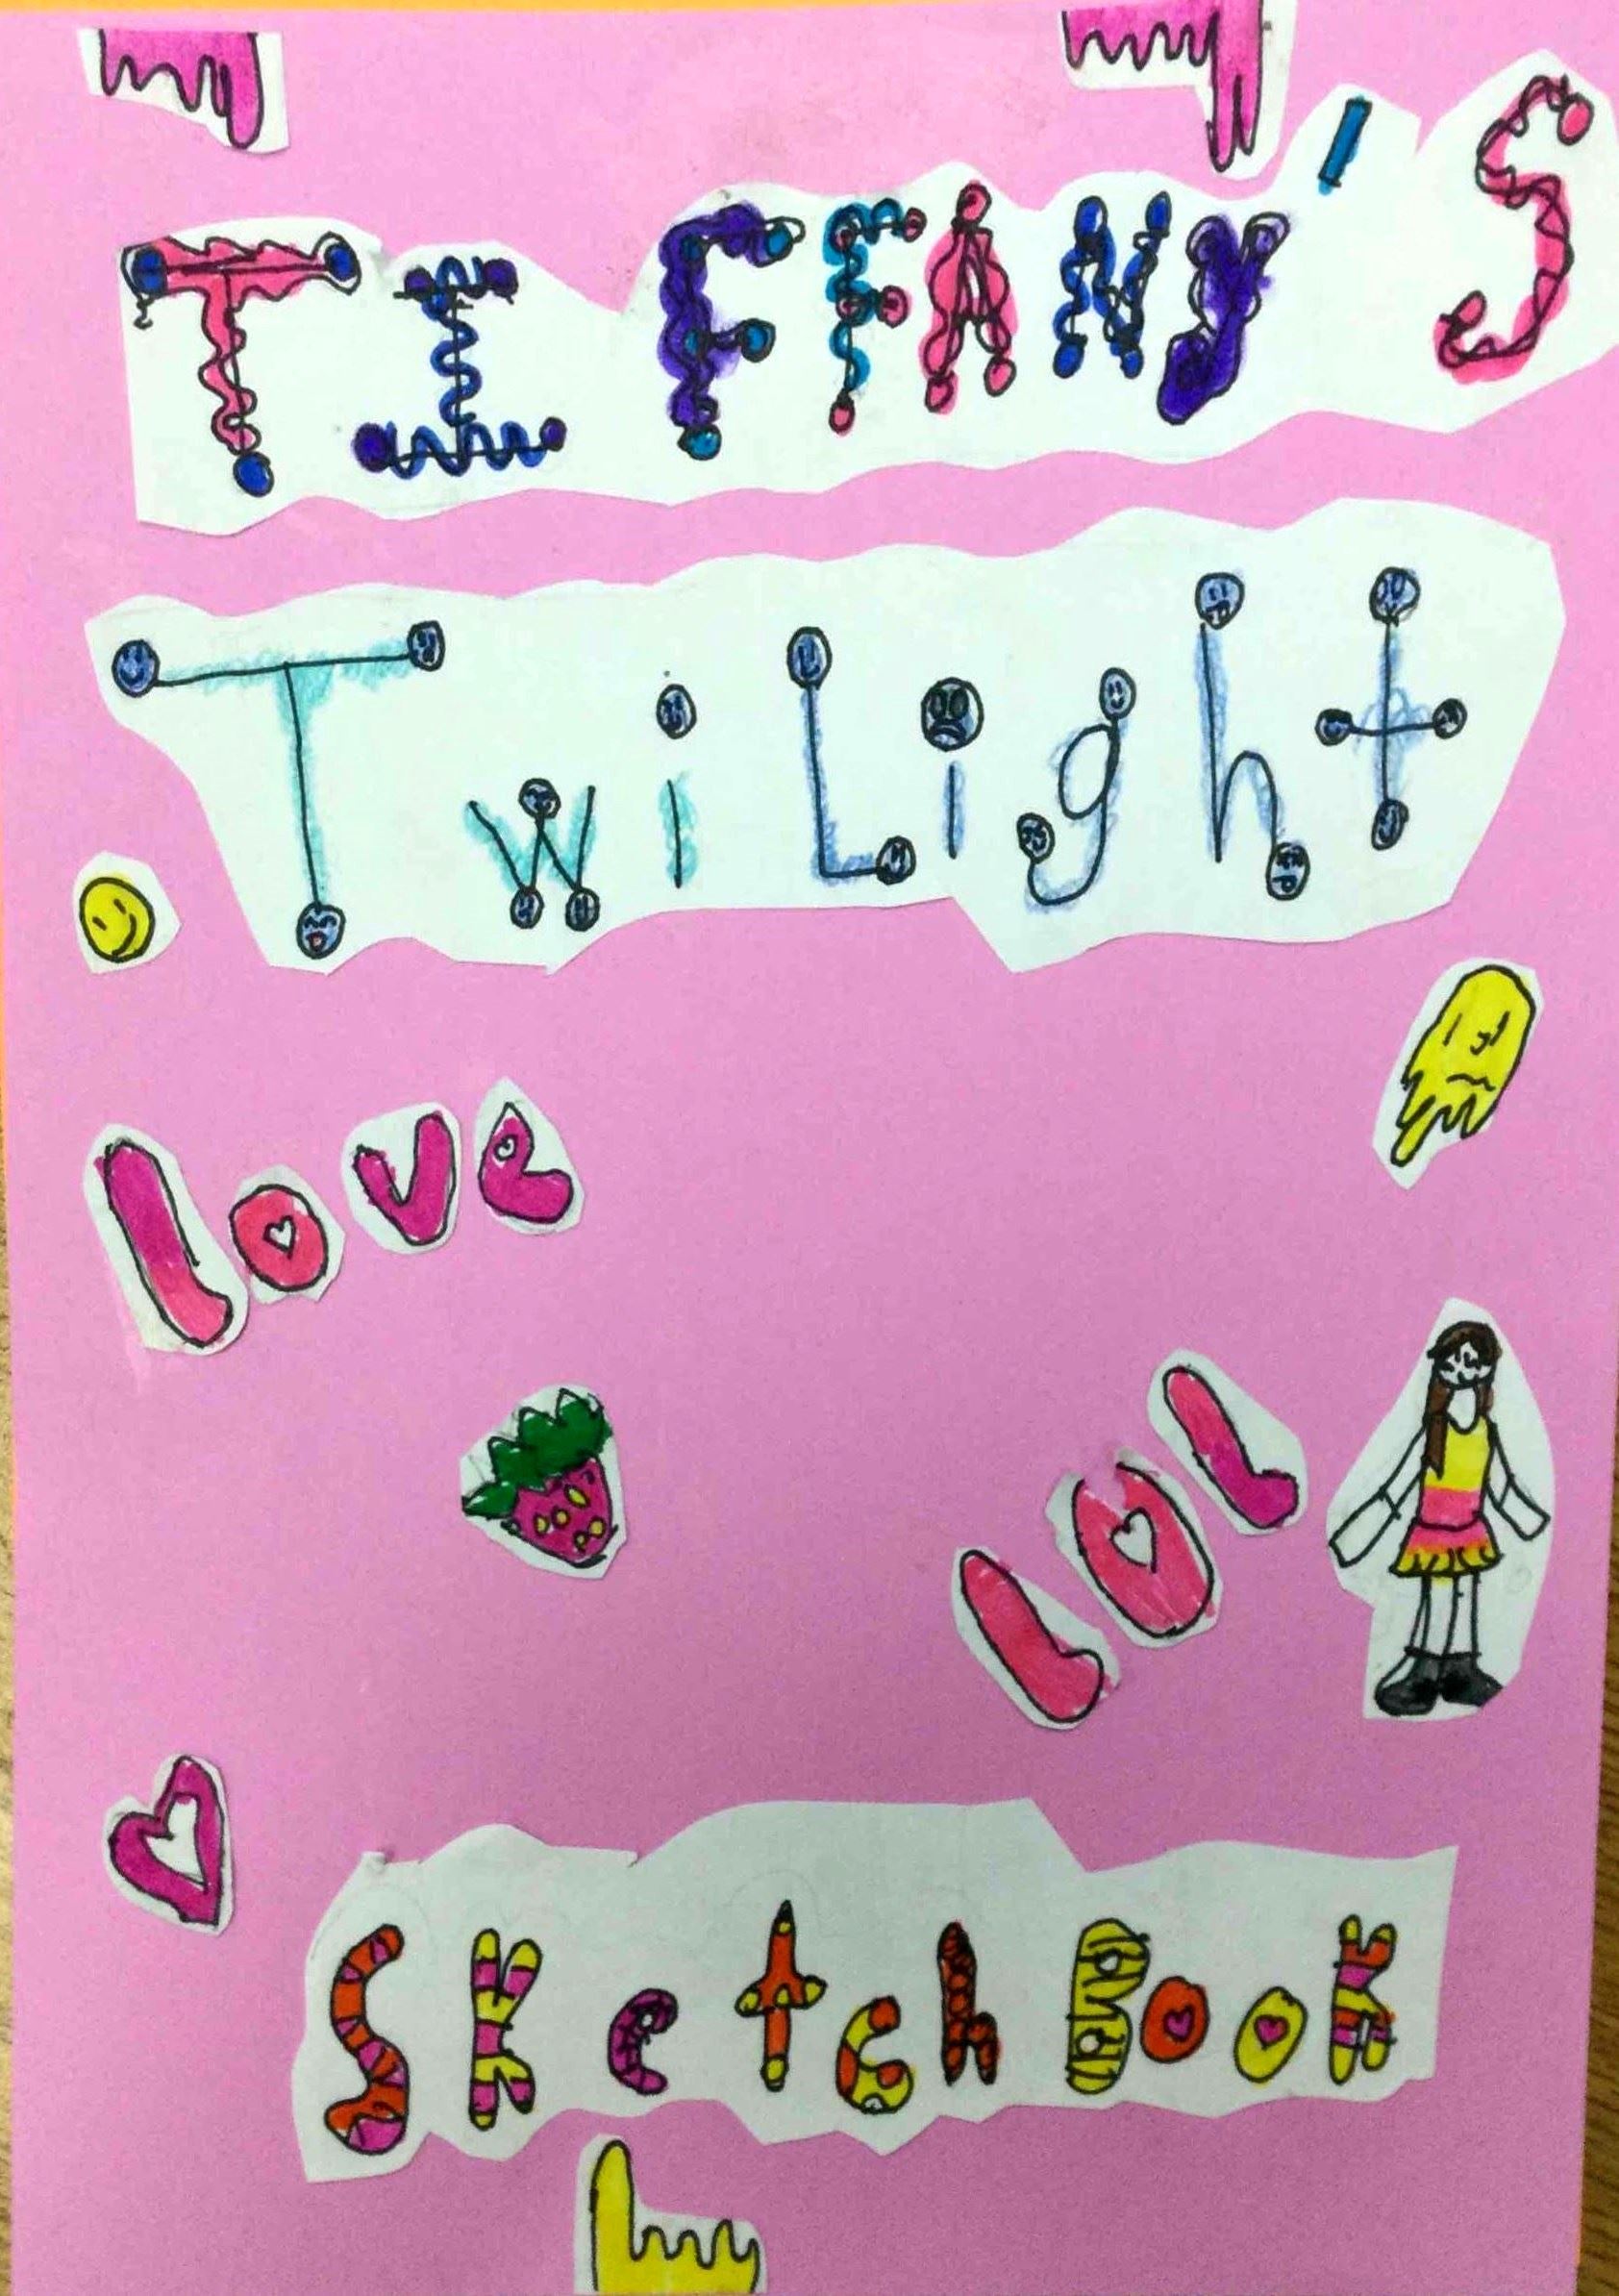 TIFFANY'S
TwiLight
love
lOl
SKetchBooK